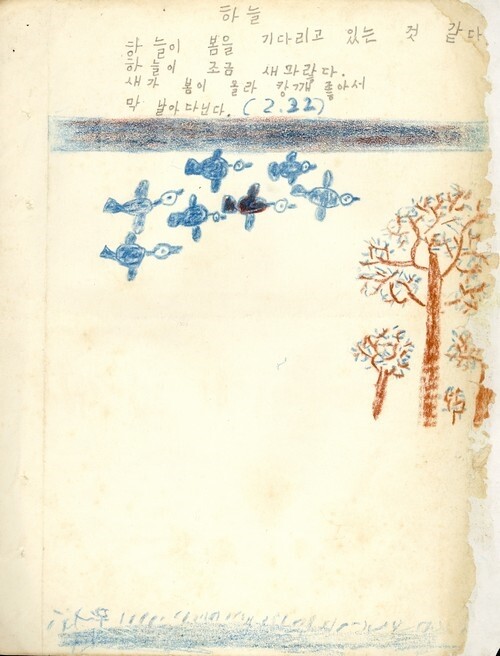 하늘
하늘이 봄을 기다리고 있는 것 같다
하늘이 조금 새파랗다.
새가 봄이 올라 캉깨 좋아서
막 날아다닌다. (2.22)